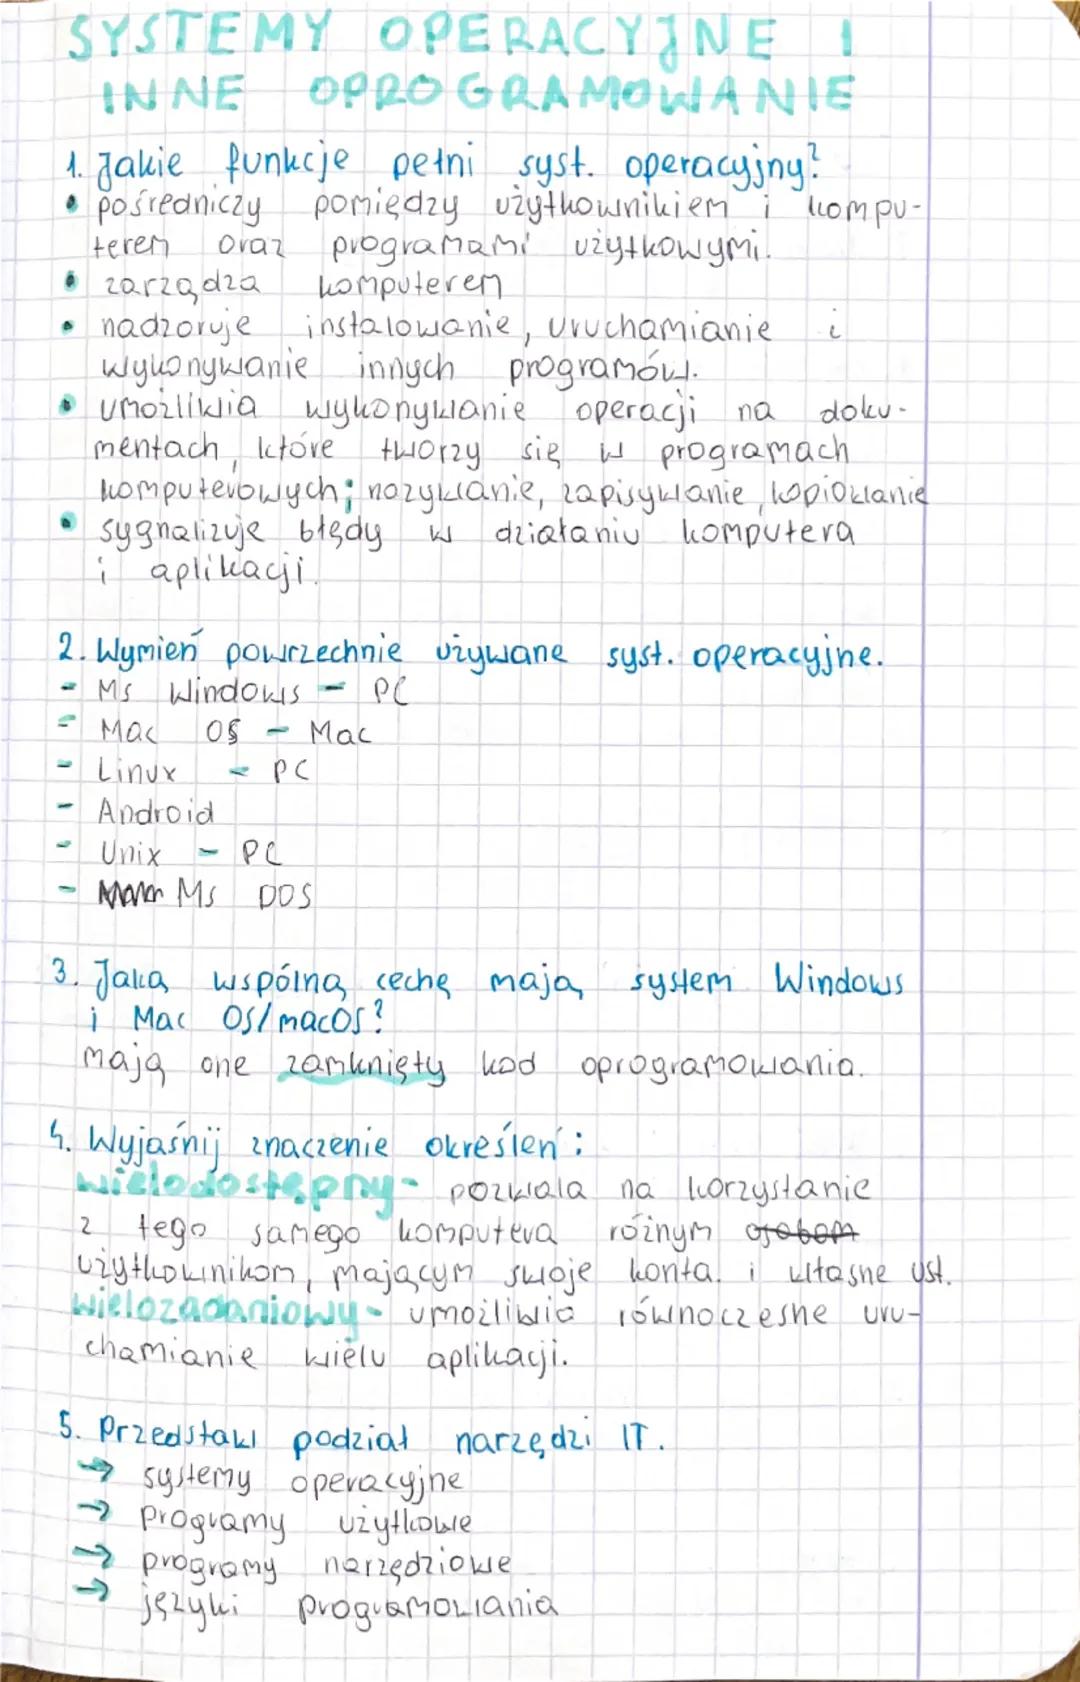 SYSTEMY OPERACYJNE I
INNE OPROGRAMOWANIE
1. Jakie funkcje pełni syst. operacyjny?
• pośredniczy pomiędzy użytkownikiem i kompu-
terem oraz programami użytkowymi.
• zarządza komputerem
• nadzoruje instalowanie, uruchamianie i
wykonywanie innych programów.
• umożliwia wykonywanie operacji na doku-
mentach, które tworzy się w programach
komputerowych; nazywanie, zapisywanie, kopiowanie
• sygnalizuje błędy w działaniu komputera
i aplikacji.
2. Wymień powrzechnie używane syst. operacyjne.
- Ms Windows - PC
- Mac OS - Mac
- Linux - PC
- Android
- Unix - PC
- Ms DOS
3. Jaką wspólną cechę mają system Windows
i Mac OS/macOS?
mają one zamknięty kod oprogramowania.
4. Wyjaśnij znaczenie określeń:
wielodostępny - pozwala na korzystanie
z tego samego komputera różnym osobom
użytkownikom, mającym swoje konta. i własne ust.
wielozadaniowy - umożliwia równoczesne uru-
chamianie wielu aplikacji.
5. Przedstaw podział narzędzi IT.
→ systemy operacyjne
→ programy użytkowe
→ programy narzędziowe
→ języki programowania